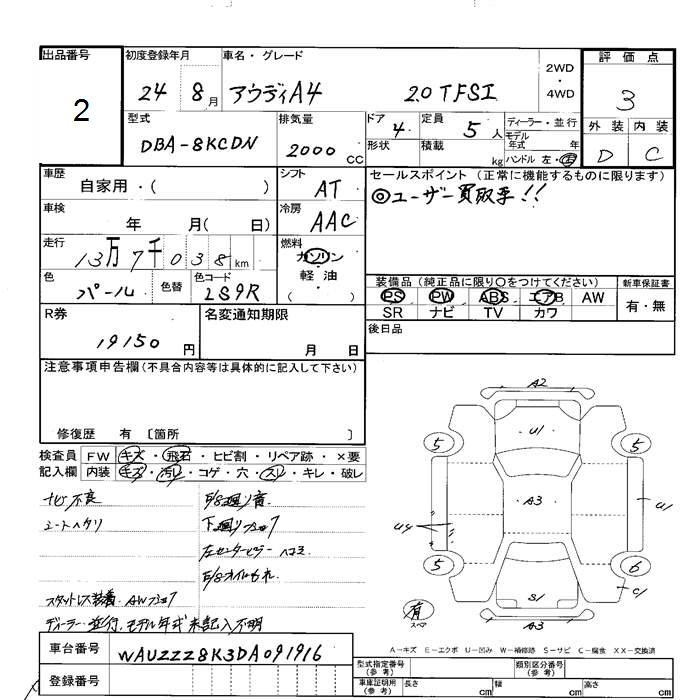 出品番号
2
初度登録年月
24 8月
車名・グレード
アウディA4 2.0 TFSI
2WD
・
4WD
評価点
3
外装 内装
D C
型式
DBA-8KCDN
排気量
2000cc
ドア 4
形状
定員 5人
積載 kg
ディーラー・並行
モデル年式 年
ハンドル 左・右
車歴
自家用・( )
シフト
AT
セールスポイント(正常に機能するものに限ります)
◎ユーザー買取車!!
車検
年 月( 日)
冷房
AAC
走行
13万7千038km
燃料
ガソリン
・
軽油
( )
色
パール
色替
色コード
2S9R
装備品(純正品に限り○をつけてください)
PS PW ABS エアB AW
SR ナビ TV カワ
新車保証書
有・無
R券
19150円
名変通知期限
月 日
後日品
注意事項申告欄(不具合内容等は具体的に記入して下さい)
修復歴 有 〔箇所 〕
検査員記入欄
FW キズ・飛石・ヒビ割・リペア跡・×要
内装 キズ・汚れ・コゲ・穴・スレ・キレ・破レ
ナビ不良
シートヘタリ
E/G廻り音
下廻りサビ
左センターピラーヘコミ
E/Gオイルもれ
スタットレス装着
ディーラー・並行、モデル年式未記入不明
A2
U1
5
5
A3
U4
U1
5
6
S1
C1
A3
有
スペア
A-キズ E-エクボ U-凹み W-補修跡 S-サビ C-腐食 XX-交換済
車台番号
WAUZZZ8K3DA091916
登録番号
型式指定番号(参考)
類別区分番号(参考)
車庫証明用(参考)
長さ cm
幅 cm
高さ cm